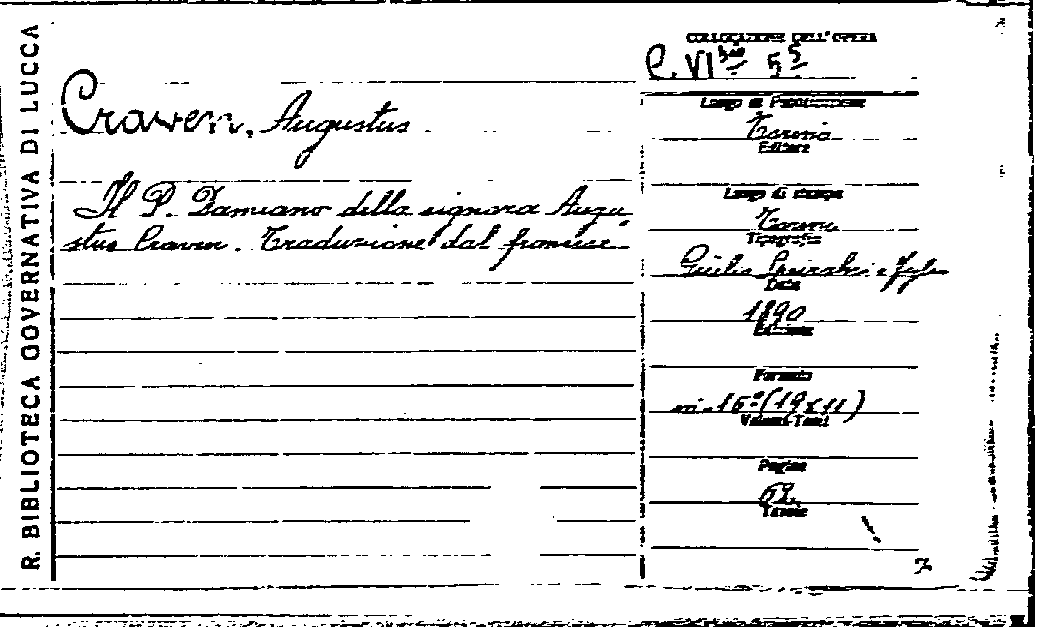 R. BIBLIOTECA GOVERNATIVA DI LUCCA
Craven, Augustus
Il P. Damiano della signora Augu-
stus Craven. Traduzione dal francese
COLLOCAZIONE DELL'OPERA
C. VI bis 55
Luogo di Pubblicazione
Torino
Editore
Luogo di stampa
Torino
Tipografia
Giulio Speirani e figli
Data
1890
Edizione
Formato
in-16º (19x11)
Volumi-Tomi
Pagine
69.
Tavole
7